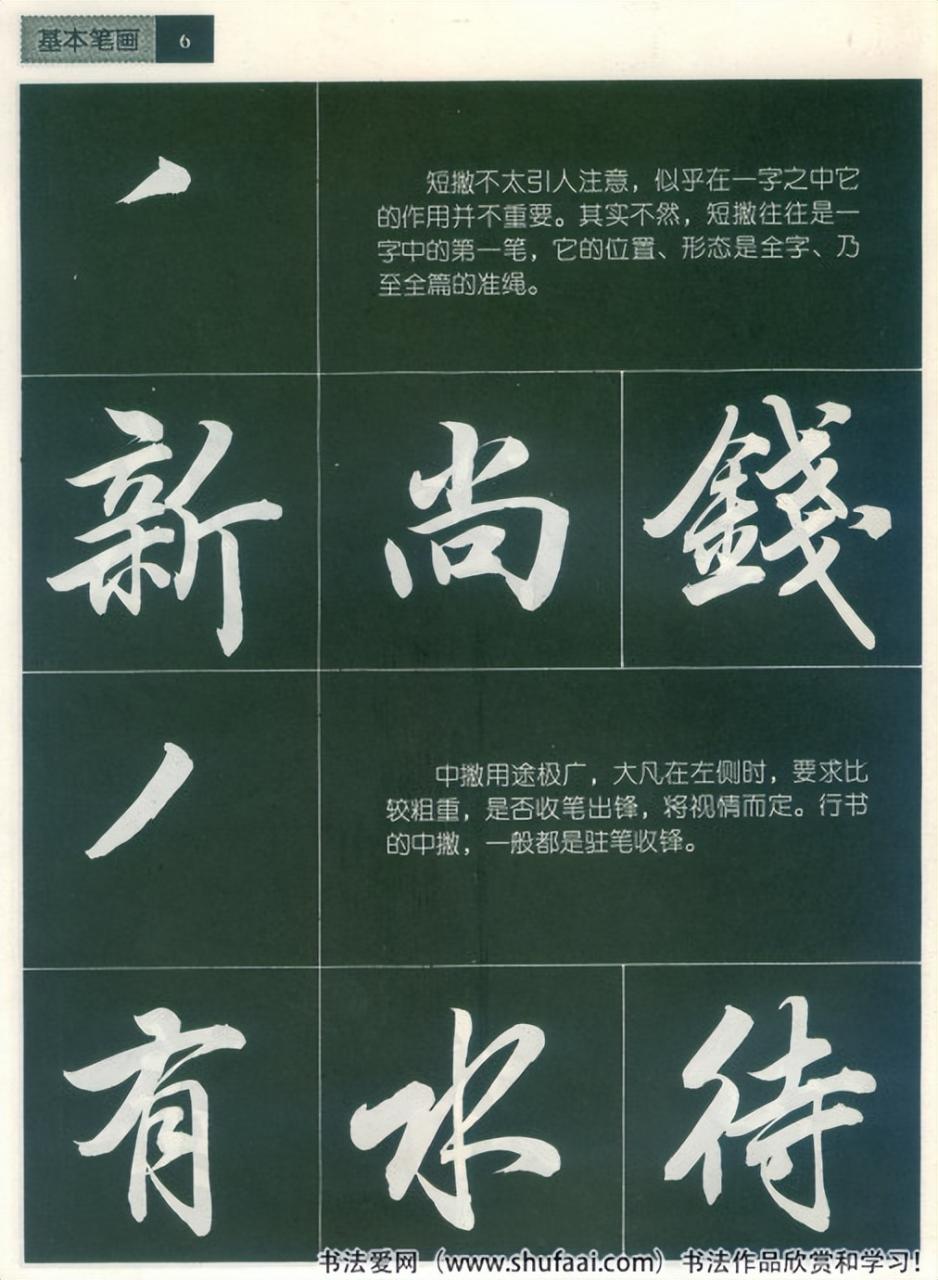 基本笔画 6
短撇不太引人注意，似乎在一字之中它
的作用并不重要。其实不然，短撇往往是一
字中的第一笔，它的位置、形态是全字、乃
至全篇的准绳。
新 尚 錢
中撇用途极广，大凡在左侧时，要求比
较粗重，是否收笔出锋，将视情而定。行书
的中撇，一般都是驻笔收锋。
有 水 待
书法爱网（www.shufaai.com）书法作品欣赏和学习！